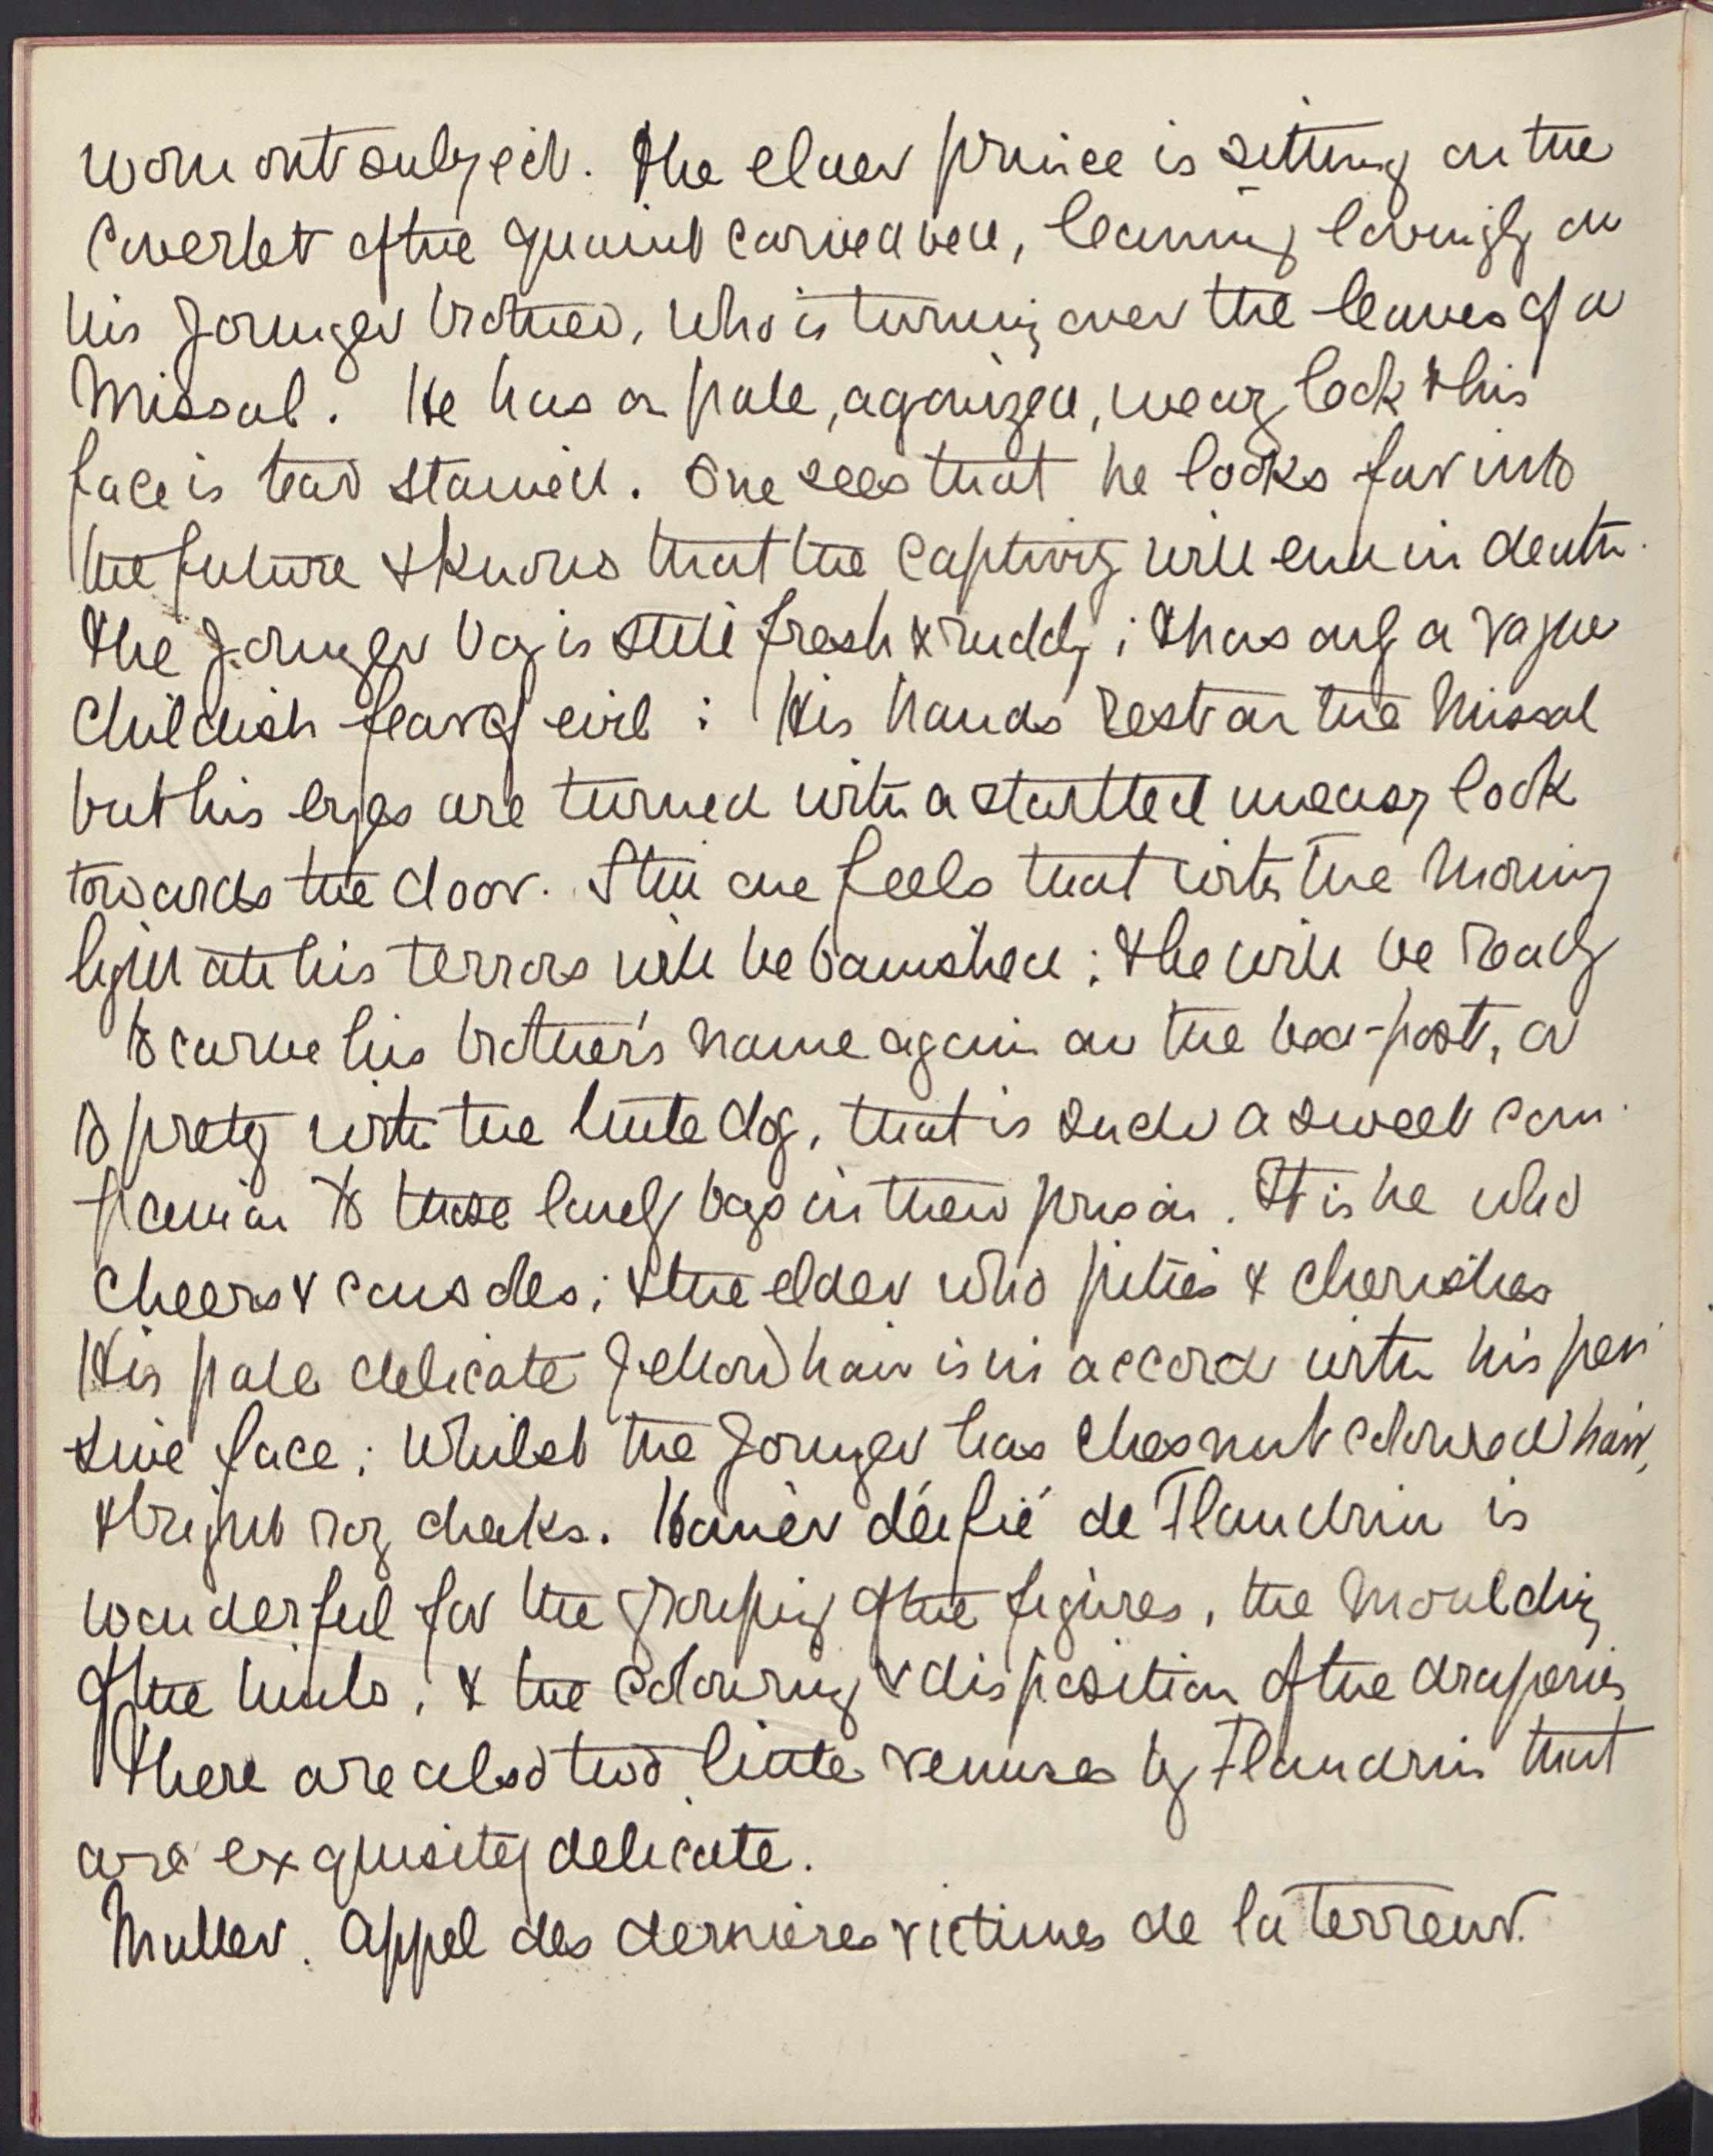 worn out subject. The elder prince is sitting on the
coverlet of the quaint carved bed, leaning lovingly on
his younger brother, who is turning over the leaves of a
Missal. He has a pale, agonized, weary look & his
face is tear stained. One sees that he looks far into
the future & knows that the captivity will end in death.
The younger boy is still fresh & ruddy; & has only a vague
childish fear of evil: His hands rest on the Missal
but his eyes are turned with a startled uneasy look
towards the door. Still one feels that with the morning
light all his terrors will be banished; & he will be ready
to carve his brother's name again on the bed-post, or
to   with the little dog, that is such a sweet com-
panion to these lonely boys in their prison. It is he who
cheers & consoles; & the elder who pities & cherishes
His pale delicate yellow hair is in accord with his pen
sive face; whilst the younger has chesnut coloured hair,
& bright rosy cheeks. Homèr déifié de Flandrin is
wonderful for the grouping of the figures, the moulding
of the limbs, & the colouring & disposition of the draperies
There are also two little venuses by Flandrin that
are exquisitely delicate.
Muller. Appel des dernières victimes de la terreur.